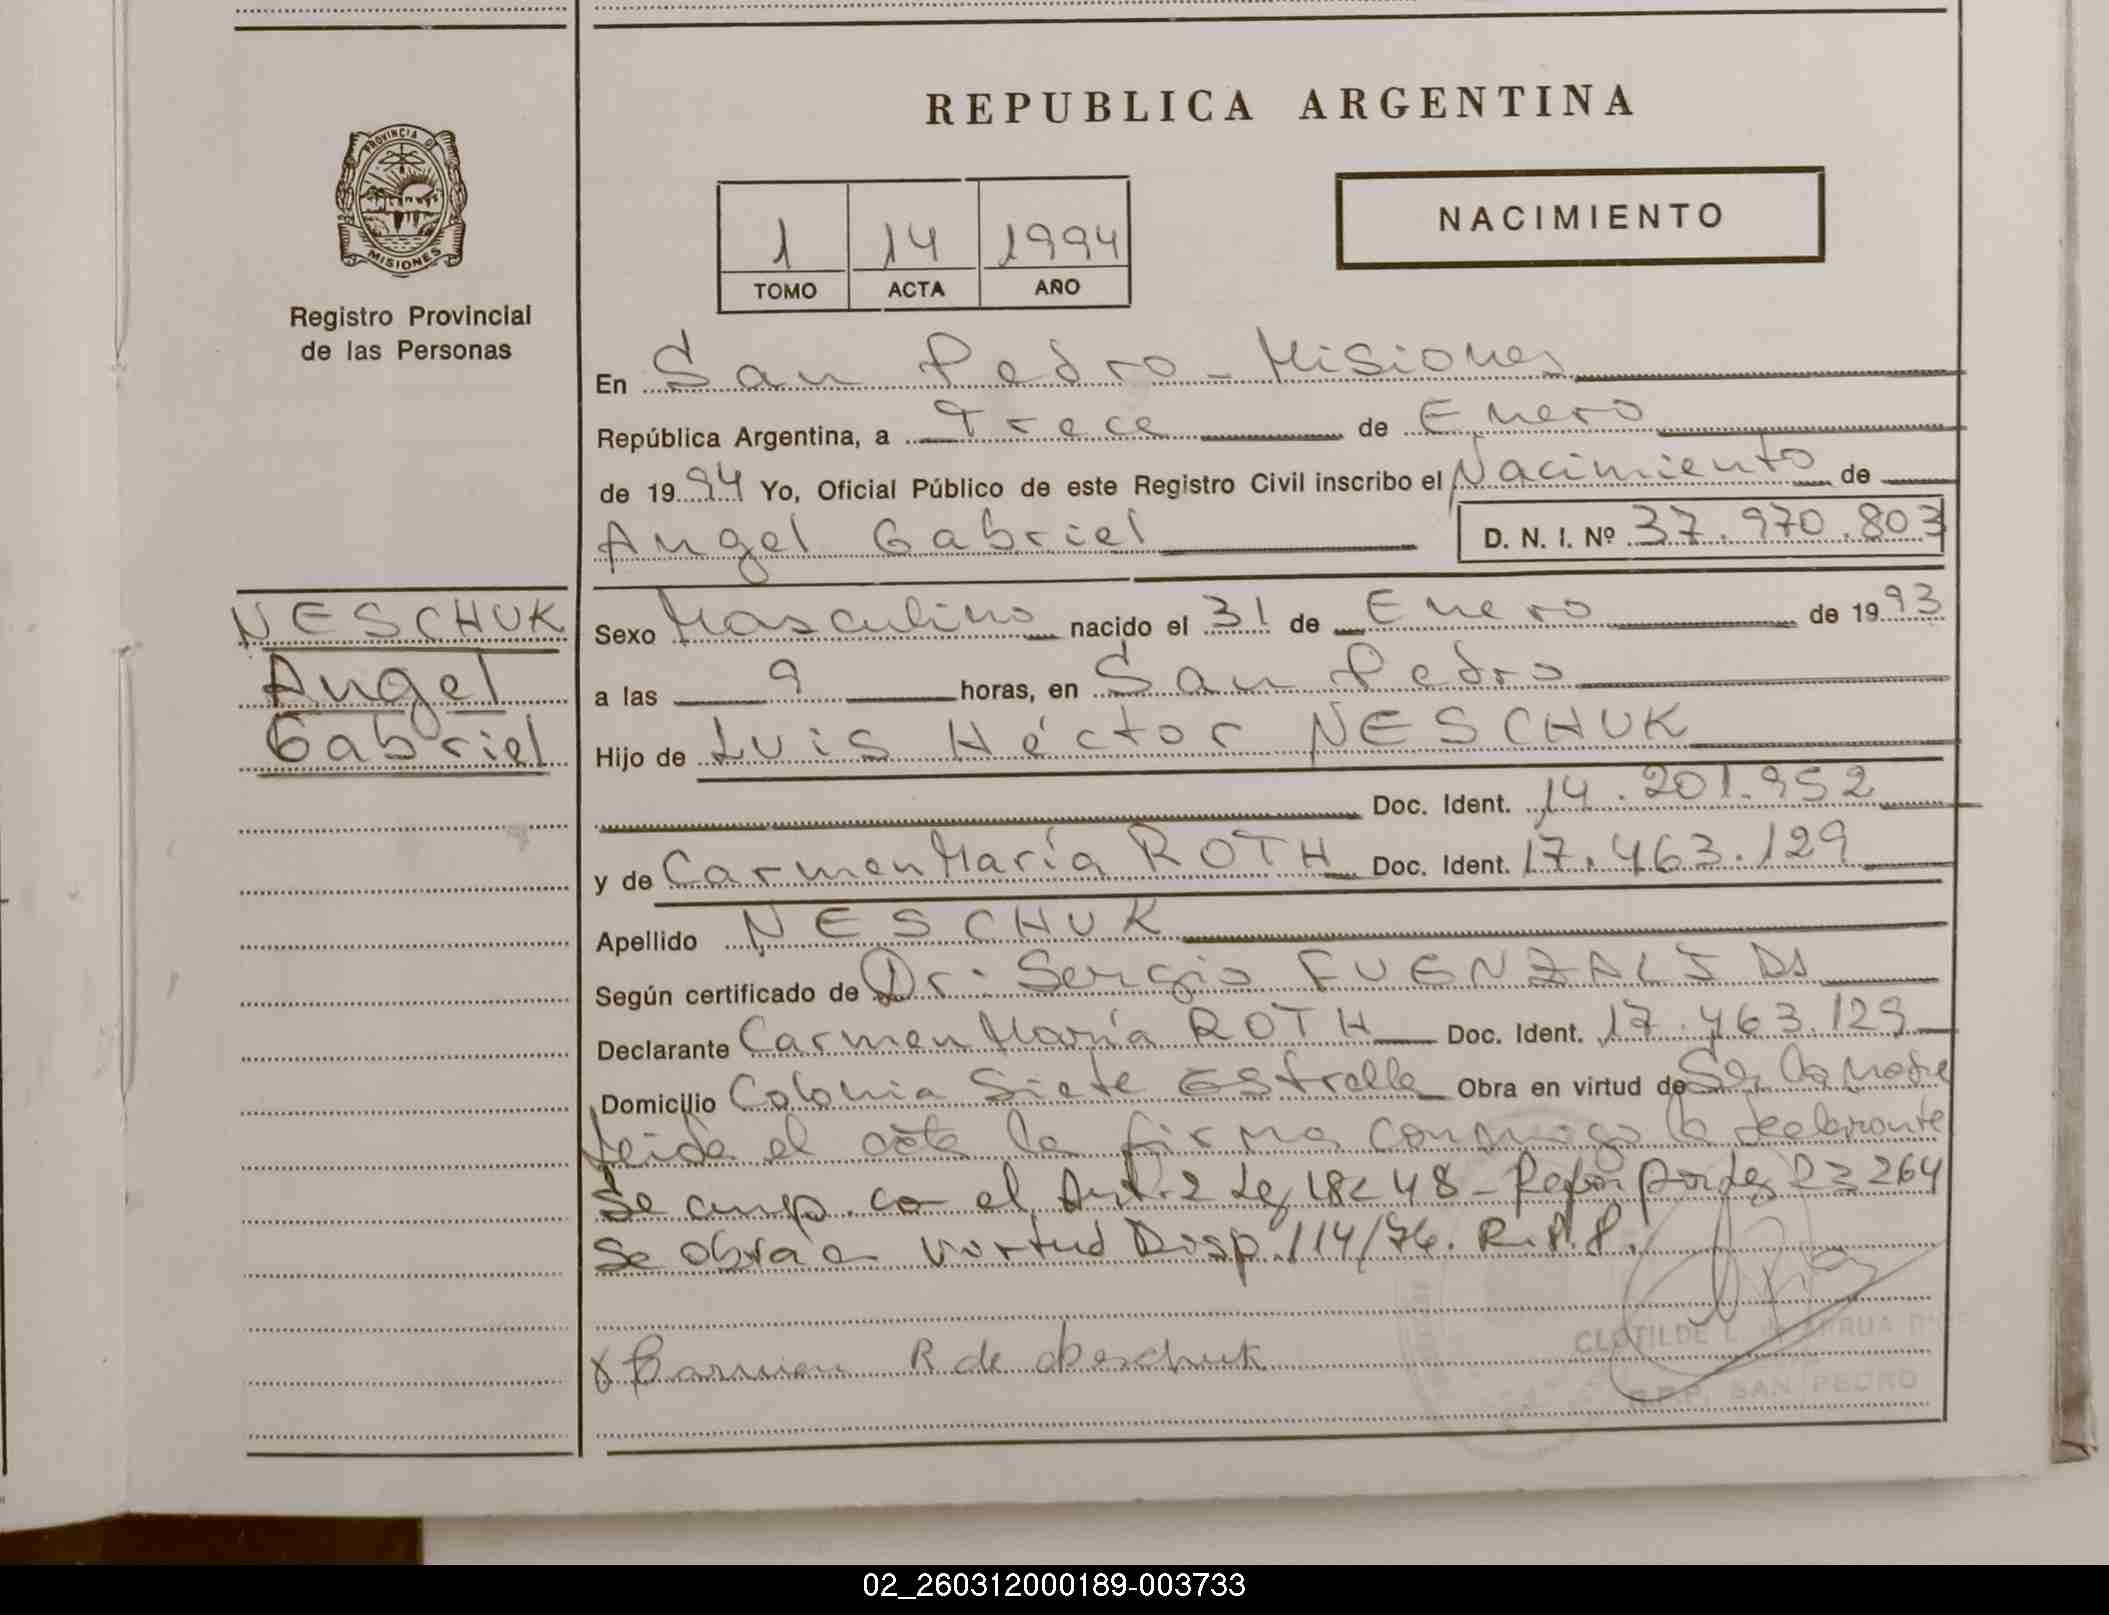 REPUBLICA ARGENTINA
PROVINCIA DE
MISIONES
Registro Provincial
de las Personas
1 14 1994
TOMO ACTA AÑO
NACIMIENTO
En San Pedro - Misiones
República Argentina, a Trece de Enero
de 1994 Yo, Oficial Público de este Registro Civil inscribo el Nacimiento de
Angel Gabriel D. N. I. Nº 37.970.803
NESCHUK
Angel
Gabriel
Sexo Masculino nacido el 31 de Enero de 1993
a las 9 horas, en San Pedro
Hijo de Luis Héctor NESCHUK
Doc. Ident. 14.201.952
y de Carmen María ROTH Doc. Ident. 17.463.129
Apellido NESCHUK
Según certificado de Dr. Sergio FUENZALIDA
Declarante Carmen María ROTH Doc. Ident. 17.463.129
Domicilio Colonia Siete Estrella Obra en virtud de Ser la madre
leida el acta la firma conmigo la declarante
Se cump. con el Art. 2 Ley 18248 - por Ley 23264
Se obra en virtud Disp. 114/76. R.P.P.
x Carmen R de Neschuk
CLOTILDE
R.P.P. SAN PEDRO
02_260312000189-003733